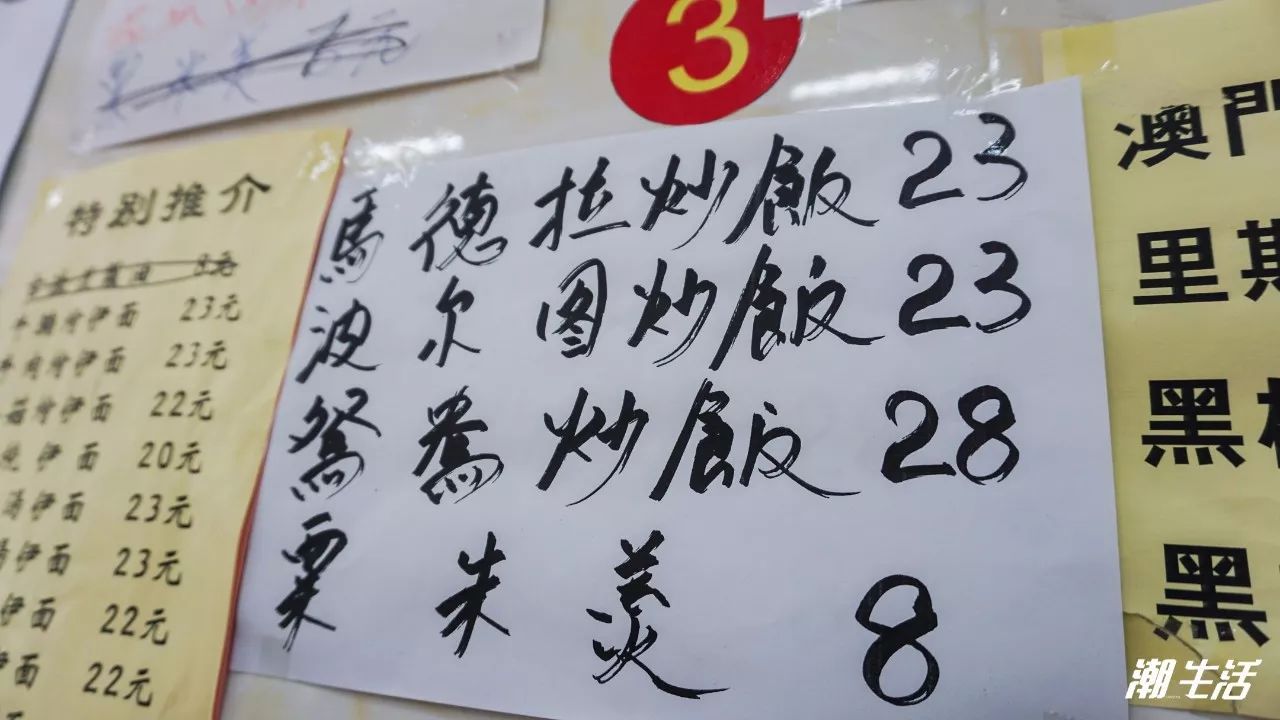 3
特别推介
牛腩烩伊面 23元
牛肉烩伊面 23元
烩伊面 22元
伊面 20元
汤伊面 23元
伊面 23元
伊面 22元
伊面 22元
馬德拉炒飯 23
波尔图炒飯 23
鴛鴦炒飯 28
粟米羹 8
澳門
里斯
黑椒
黑
潮生活